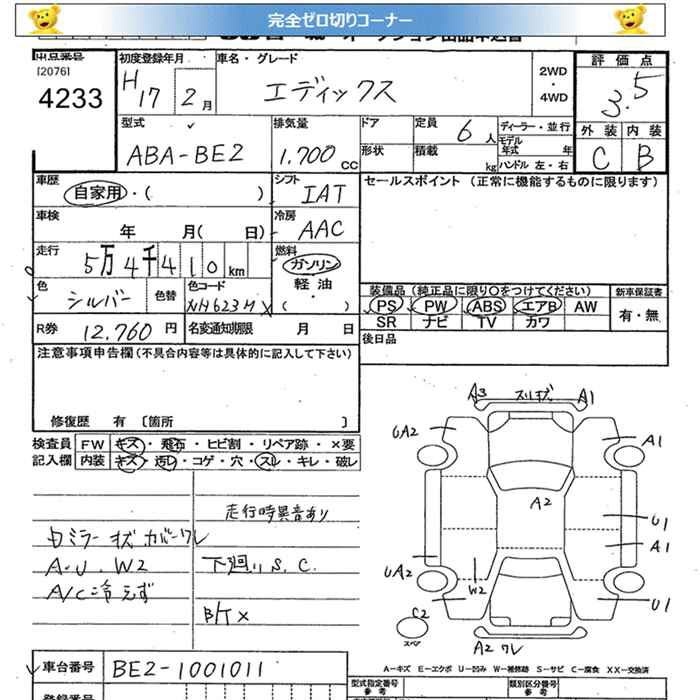 完全ゼロ切りコーナー
出品番号
[2076]
4233
初度登録年月
H 17 2 月
車名・グレード
エディックス
2WD
・
4WD
評価点
3.5
外装 内装
C B
型式
ABA-BE2
排気量
1.700 CC
ドア
形状
定員 6 人
積載 kg
ディーラー・並行
モデル年式 年
ハンドル 左・右
車歴
自家用・( )
シフト
IAT
セールスポイント (正常に機能するものに限ります)
車検
年 月( 日)
冷房
AAC
走行
5万4千410km
燃料
ガソリン
軽油
( )
色
シルバー
色替
色コード
NH623M X
R券 12.760 円
名変通知期限 月 日
装備品(純正品に限り○をつけてください)
PS PW ABS エアB AW
SR ナビ TV カワ
新車保証書
有・無
後日品
注意事項申告欄(不具合内容等は具体的に記入して下さい)
修復歴 有 〔箇所 〕
検査員
記入欄
FW キズ・飛石・ヒビ割・リペア跡・×要
内装 キズ・汚レ・コゲ・穴・スレ・キレ・破レ
走行時異音あり
ミラー キズ カバーワレ
A・U . W2
下廻り S.C.
A/C冷えず
B/T X
A3 スリキズ A1
UA2
A1
A2
U1
A1
UA2
W2
U1
C2
スペア
A2 ワレ
車台番号 BE2-1001011
型式指定番号
参考
類別区分番号
参考
A-キズ E-エクボ U-凹み W-補修跡 S-サビ C-腐食 XX-交換済